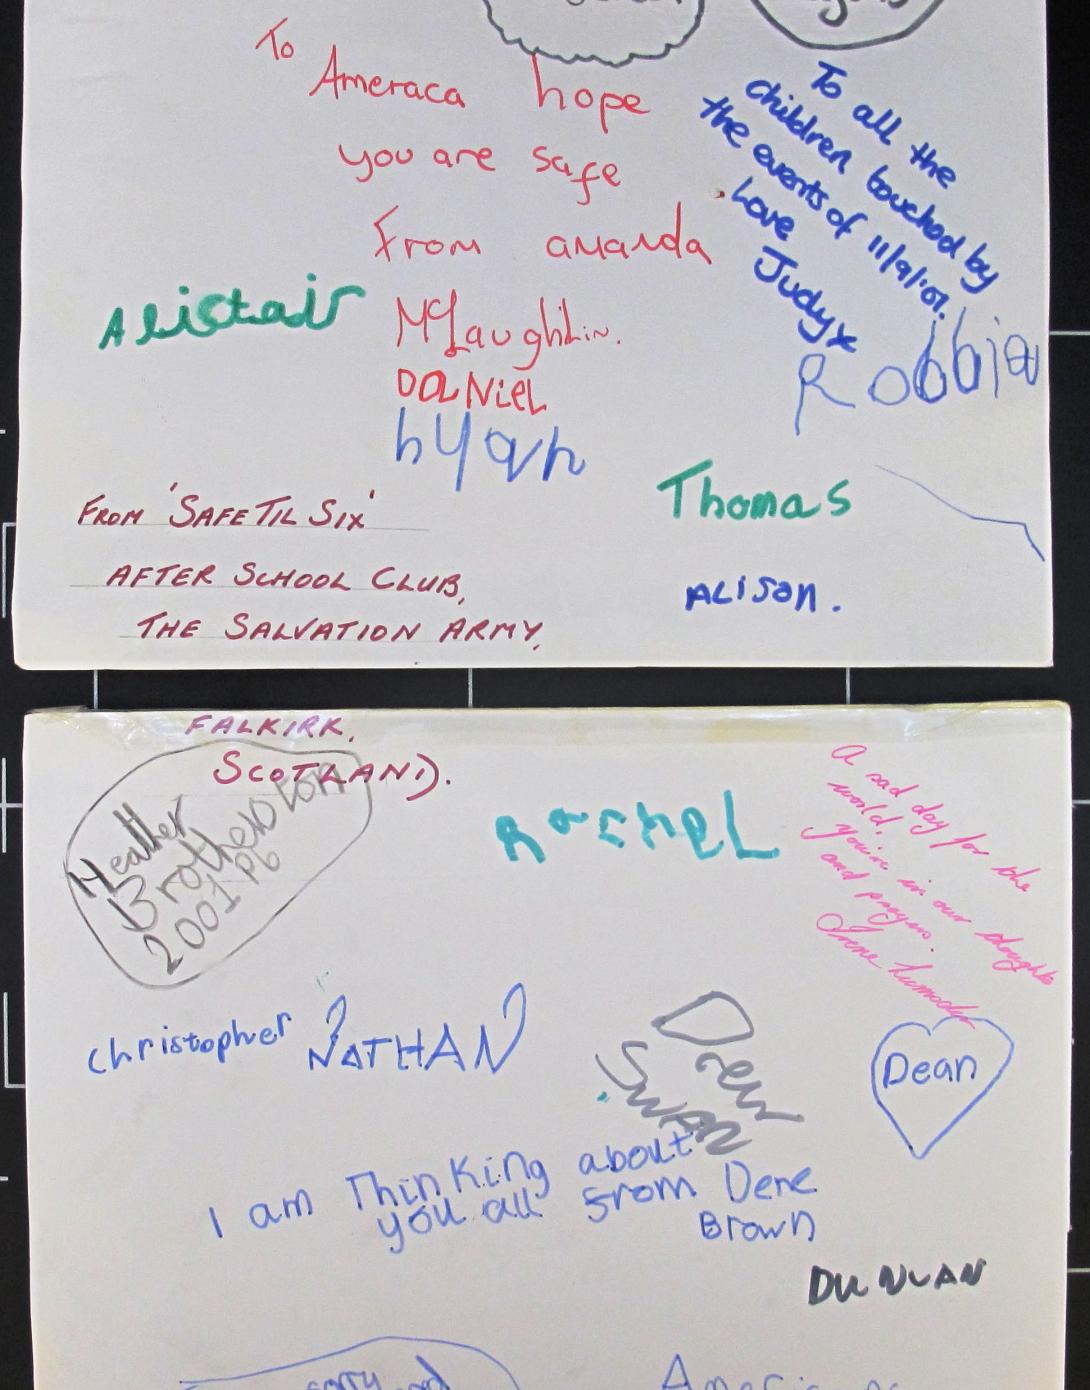 To
Ameraca hope
you are safe
From amanda
McLaughlin.
DaNiEL
To all the
children touched by
the events of 11/9/'01.
Love
Judy x
Alistair
Robbie
From 'Safe Til Six'
After School Club,
The Salvation Army,
Thomas
Alison.
Falkirk,
Scotland).
Heather
Brotherston
2001 P6
RachEL
A sad day for the
world.
You're in our thoughts
and prayers.
Irene
christopher
NATHAN
Drew
SWAN
Dean
I am Thinking about
you all from Dene
Brown
DUNCAN
sorry